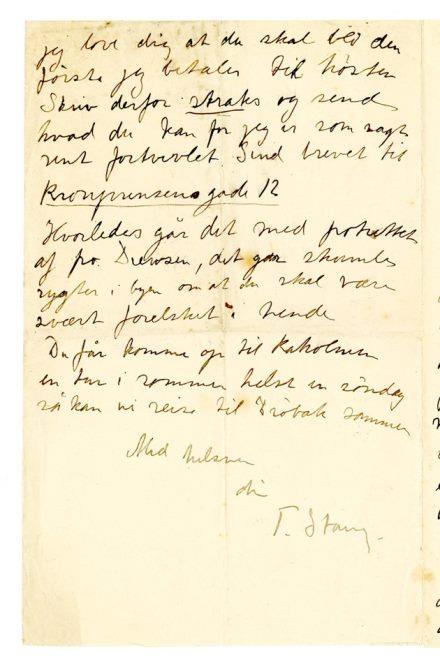 jeg love dig at du skal bli den
første jeg betaler til høsten
Skriv derfor straks og send
hvad du kan for jeg er som sagt
rent fortvivlet Send brevet til
Kronprinsensgade 12
Hvorledes går det med portrættet
af fru Drewsen, det går skumle
rygter i byen om at du skal være
svært forelsket i hende
Du får komme op til Kaholmen
en tur i sommer helst en söndag
så kan vi reise til Dröbak sammen
Med hilsen
din
T. Stang.